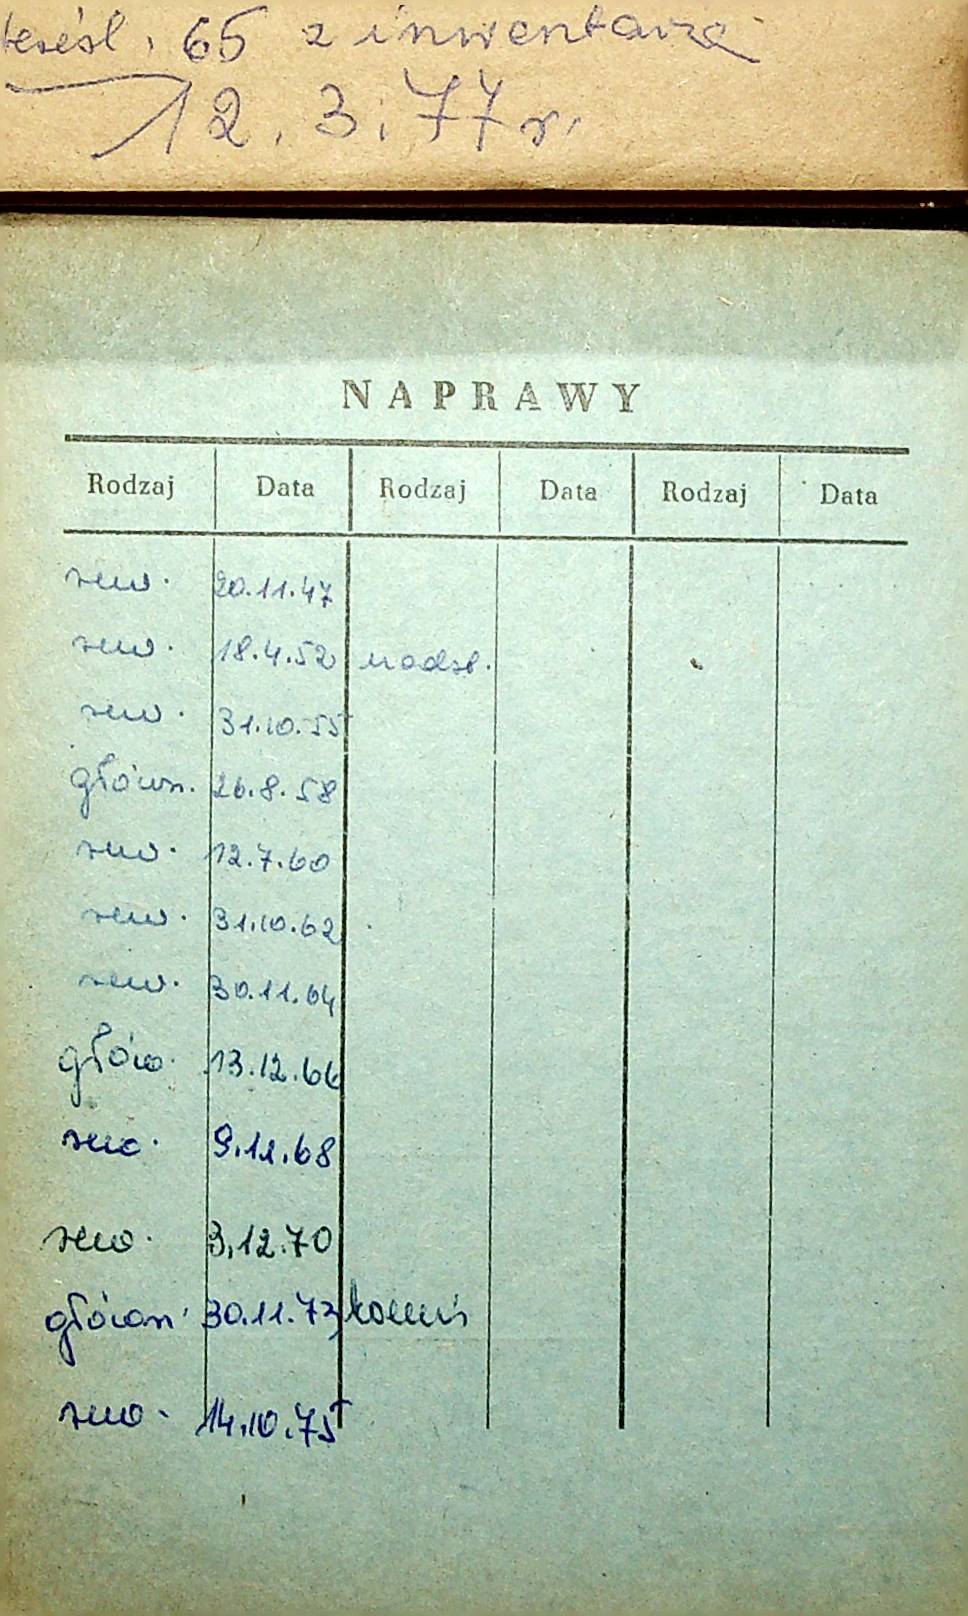 skreśl. 65 z inwentarza
12.3.77 r.
NAPRAWY
Rodzaj Data Rodzaj Data Rodzaj Data
rew. 20.11.47
rew. 18.4.52 nadzw.
rew. 31.10.55
główn. 26.8.58
rew. 12.7.60
rew. 31.10.62
rew. 30.11.64
głów. 13.12.66
rew. 9.11.68
rew. 3.12.70
główn. 30.11.73 komis
rew. 14.10.75